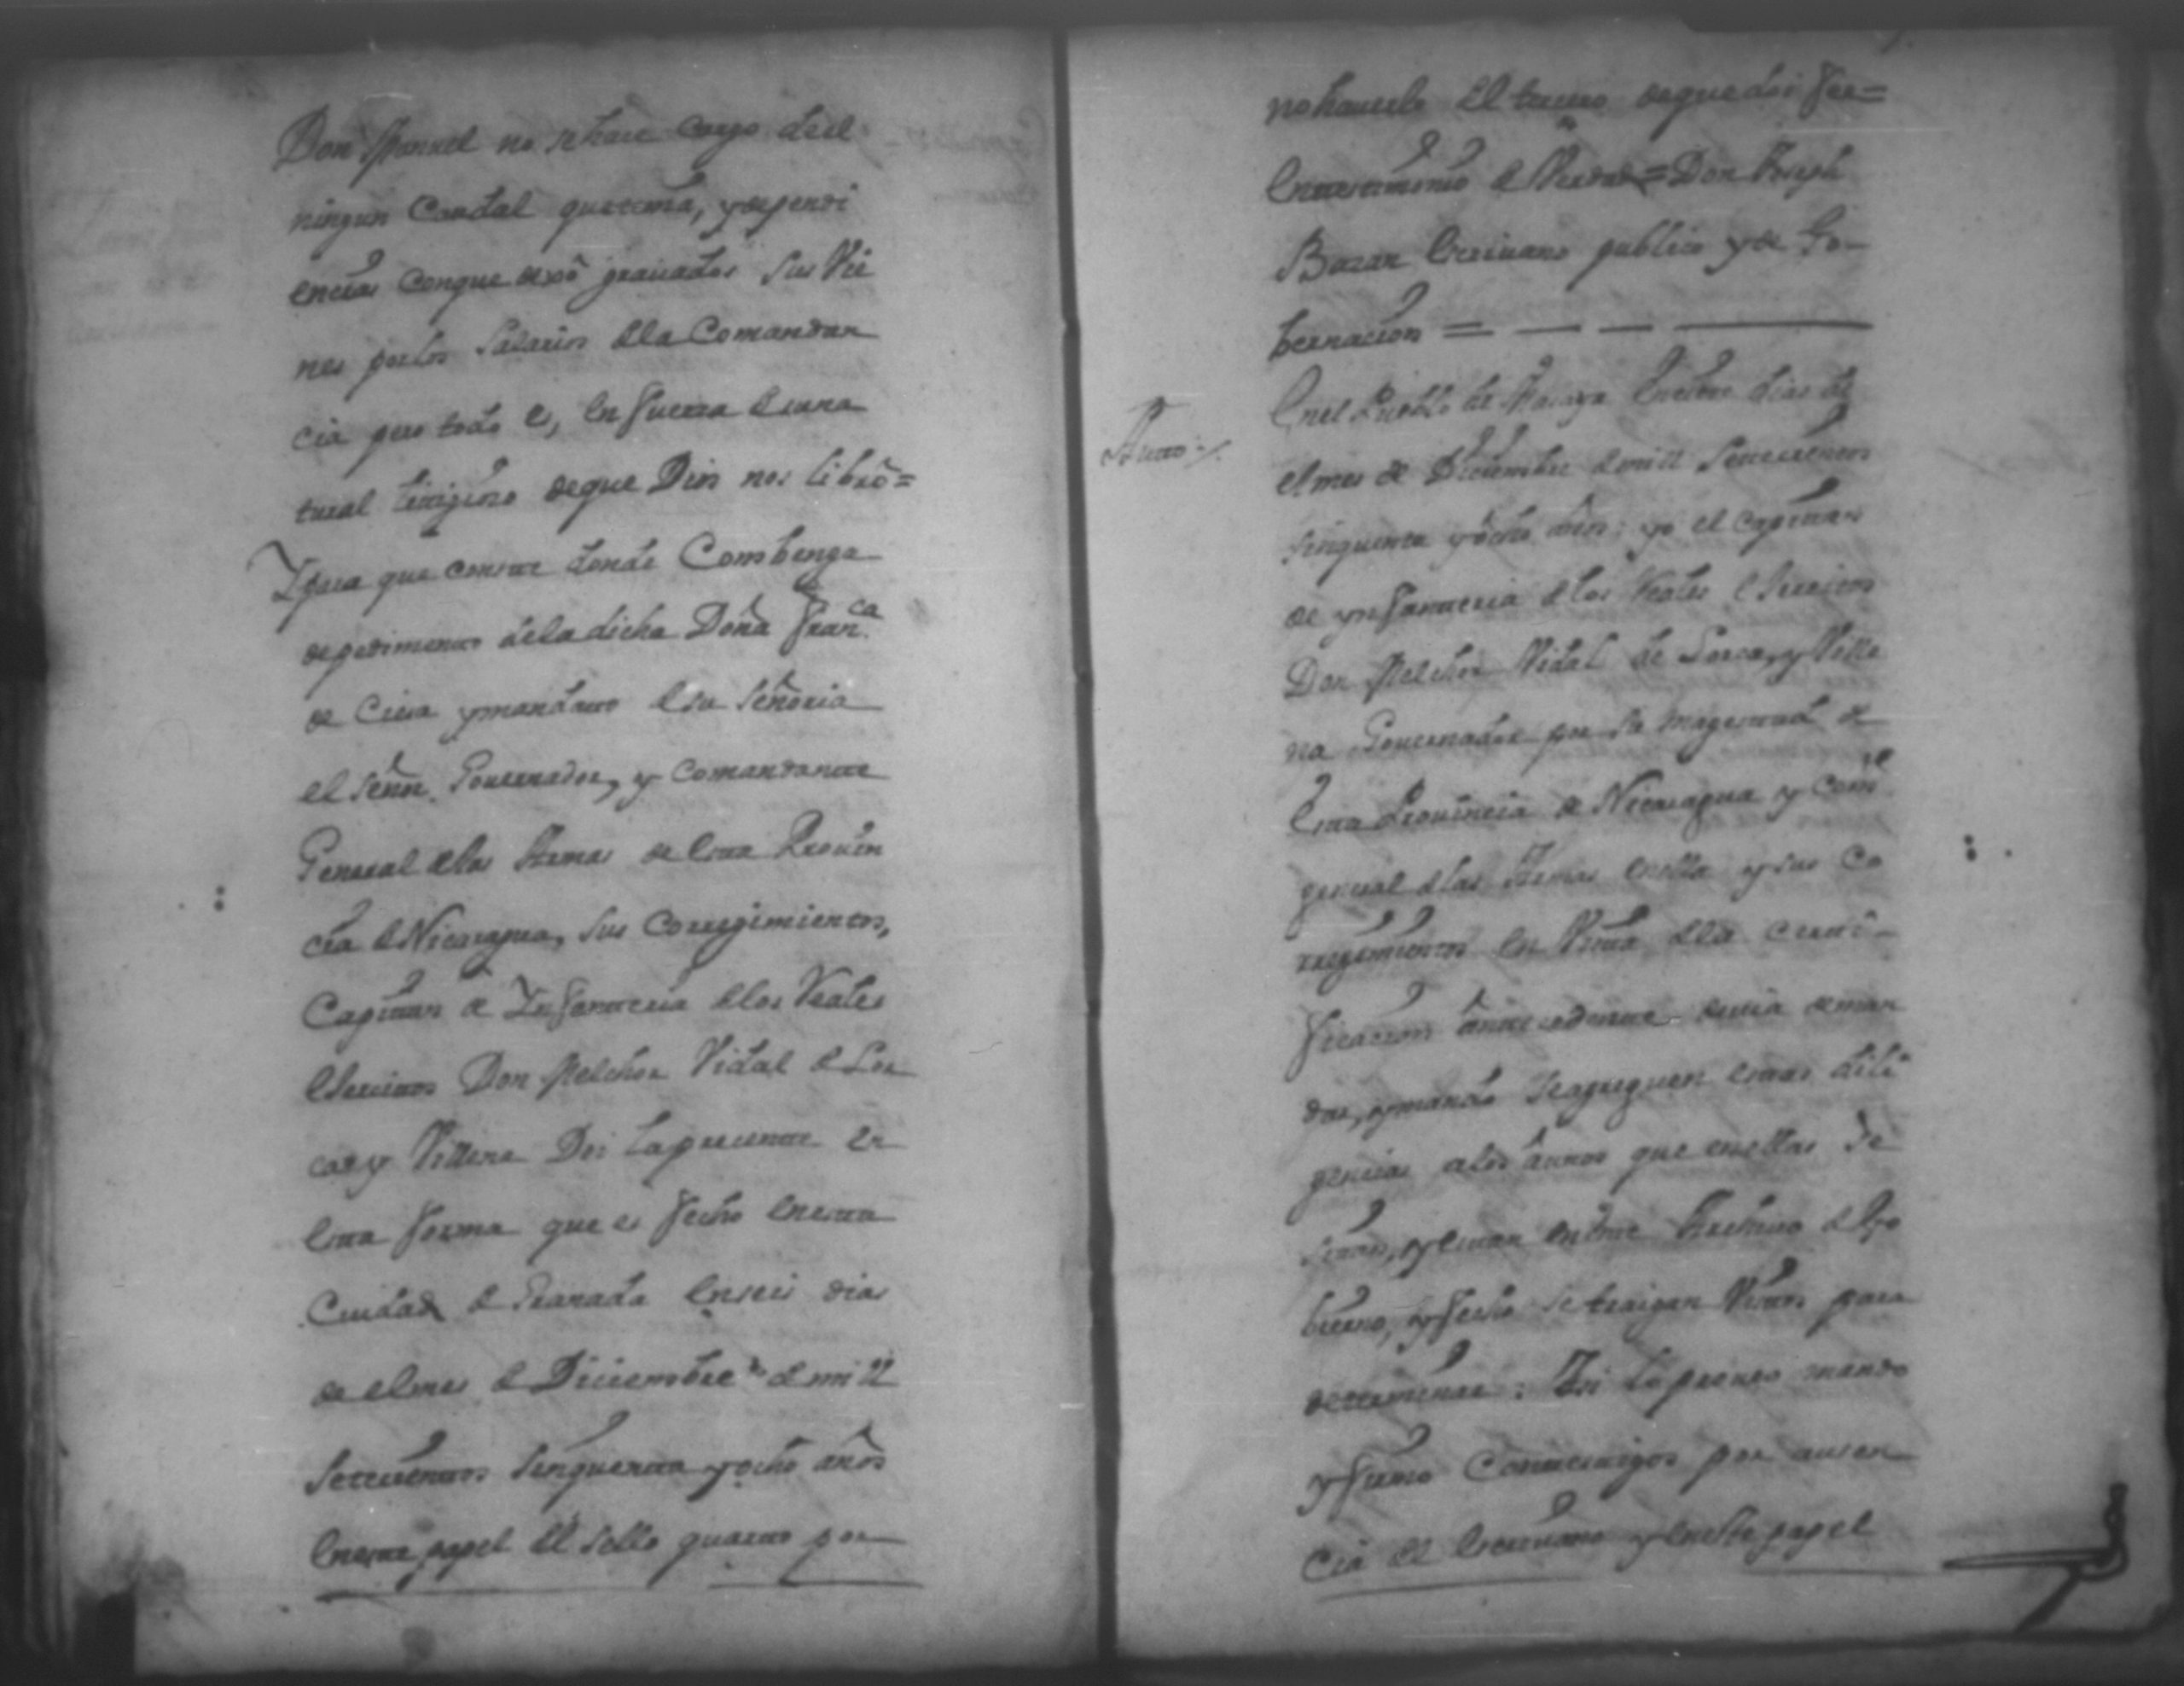 Don Manuel no se hace cargo de el
ningun Caudal que tenia, y dependi
encias conque dexò grauados sus Vie
nes por los Salarios de la Comandan
cia pero todo es, en fuerza de una
tural de que Dios nos librò=
Y para que conste donde Combenga
de pedimento de la dicha Doña Fran.ca
de y mandato de su señoria
el señor Gouernador, y Comandante
General de las Armas de esta Prouin
cia de Nicaragua, sus Corregimientos,
Capitan de Infanteria de los Reales
Exercitos Don Melchor Vidal de Lor
ca y Villena Doi la presente en
esta forma que es fecho en esta
Ciudad de Granada en seis dias
de el mes de Diciembre de mill
Setecientos sinquenta y ocho años
en este papel de el sello quarto por
no hauerlo de el tercero de que doi fee=
En testimonio de Verdad= Don Joseph
Bazan Escriuano publico y de Go-
bernacion=
Auto
En el Pueblo de Masaya en dias de
el mes de Diciembre de mill Setecientos
sinquenta y ocho años: yo el Capitan
de ynfanteria de los Reales Exercitos
Don Melchor Vidal de Lorca, y Ville
na Gouernador por Su Magestad de
Esta Prouincia de Nicaragua y Com.te
general de las Armas en ella y sus Co
rregimientos en Vista de la certi-
ficacion antecedente deuia deman
dar, y mando Se agreguen estas dili
gencias a los autos que en ellas Se
Sitan, y estan en este Archiuo de Go
bierno, y fecho se traigan Vistos para
determinar: Asi lo proueo mando
y firmo Con testigos por ausen
cia de el Escriuano y en este papel